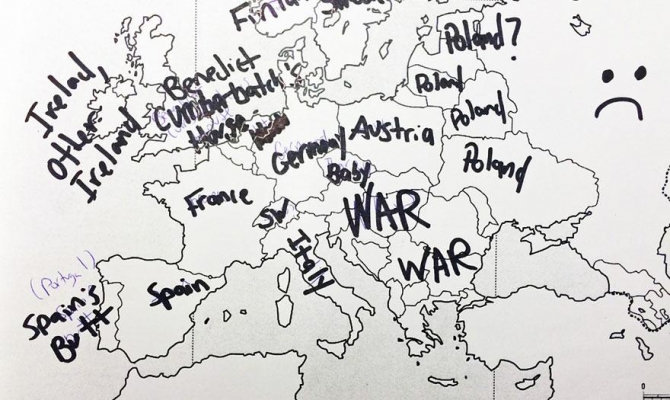 Finland
Poland?
Poland
Poland
Poland
Irelad,
Other
Ireland
Benedict
Cumberbatch's
House
Germany
Austria
Baby
France
SW
WAR
WAR
Italy
(Portugal)
Spain's
Butt
Spain